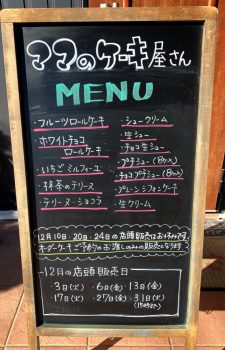 ママのケーキ屋さん
MENU
・フルーツロールケーキ
・ホワイトチョコ
ロールケーキ
・いちごミルフィーユ
・抹茶のテリーヌ
・テリーヌ・ショコラ
・シュークリーム
・生シュー
・チョコ生シュー
・プチシュー(8ケ入)
・チョコプチシュー(8ケ入)
・プレーンシフォンケーキ
・生クリーム
12月10日・20日・24日の店頭販売はお休みです。
オーダーケーキご予約のお渡しのみの販売となります
-12月の店頭販売日
・3日(火) ・6日(金) ・13日(金)
・17日(火) ・27日(金) ・31日(火)